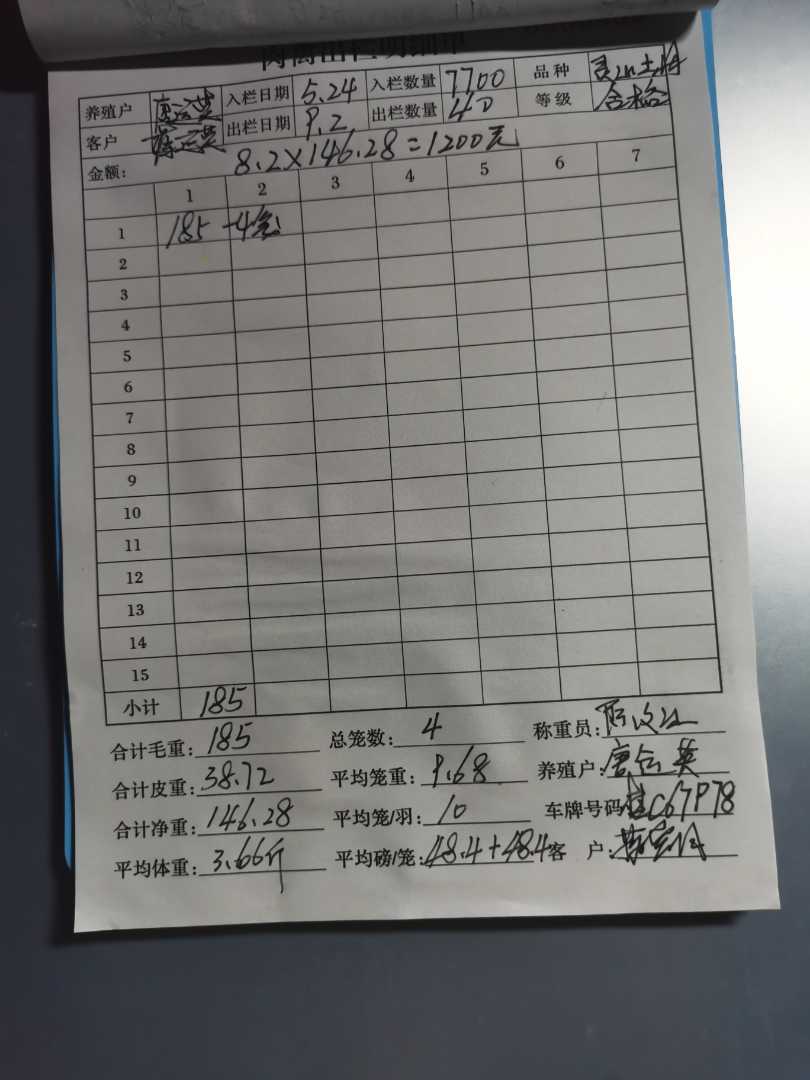 养殖户 入栏日期 5.24 入栏数量 7700 品种
客户 出栏日期 9.2 出栏数量 40 等级 合格
金额: 8.2×146.28=1200元
1 2 3 4 5 6 7
1 185 -4笼
2
3
4
5
6
7
8
9
10
11
12
13
14
15
小计 185
合计毛重: 185 总笼数: 4 称重员:
合计皮重: 38.72 平均笼重: 9.68 养殖户: 唐云英
合计净重: 146.28 平均笼/羽: 10 车牌号码 桂C67P78
平均体重: 3.66斤 平均磅/笼: 48.4+48.4 客 户: